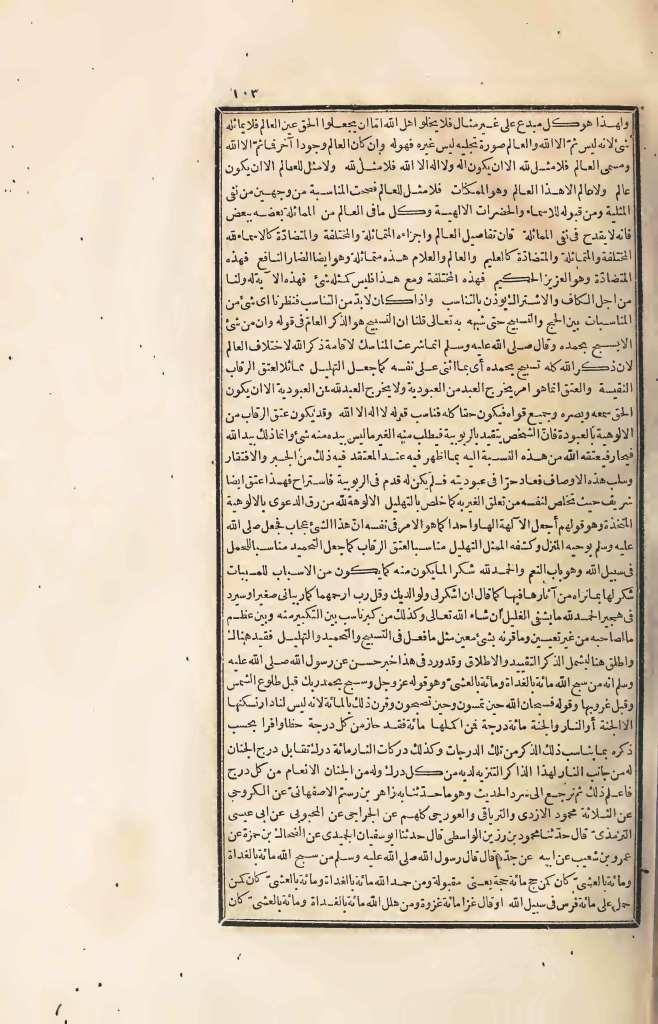 ١٠٣
ولهذا هو كل مبدع على غير مثال فلا يخلو اهل الله اما ان يجعلوا الحق عين العالم فلا يماثله
شئ لانه ليس ثم الا الله والعالم صورة تجليه ليس غيره فهو له وان كان العالم وجودا آخر فما ثم الا الله
ومسمى العالم فلا مثل لله الا ان يكون اله ولا اله الا الله فلا مثل لله ولا مثل للعالم الا ان يكون
عالم ولا عالم الا هذا العالم وهو الممكنات فلا مثل للعالم فصحت المناسبة من وجهين من نفى
المثلية ومن قبوله للاسماء والحضرات الالهية وكل ما فى العالم من المماثلة بعضه ببعض
فانه لا يقدح فى نفى المماثلة فان تفاصيل العالم واجزاءه المتماثلة والمختلفة والمتضادة كالاسماء لله
المختلفة والمتماثلة والمتضادة كالعليم والعالم والعلام هذه متماثلة وهو ايضا الضار النافع فهذه
المتضادة وهو العزيز الحكيم فهذه المختلفة ومع هذا فليس كمثله شئ فهذه الآية له ولنا
من اجل الكاف والاشتراك يؤذن بالتناسب واذا كان لا بد من التناسب فنظرنا اى شئ من
المناسبات بين الحج والتسبيح حتى شبهه به تعالى قلنا ان التسبيح هو الذكر العام فى قوله وان من شئ
الا يسبح بحمده وقال صلى الله عليه وسلم انما شرعت المناسك لاقامة ذكر الله لاختلاف العالم
لان ذكر الله كله تسبيح بحمده أى بما اثنى على نفسه كما جعل التهليل مماثلا لعتق الرقاب
النفيسة والعتق انما هو امر يخرج العبد من العبودية ولا يخرج العبد لله عن العبودية الا ان يكون
الحق سمعه وبصره وجميع قواه فيكون حقا كله فناسب قوله لا اله الا الله وقد يكون عتق الرقاب من
الالوهية بالعبودة فان الشخص يتقيد بالربوبية فيطلب منه الغير ما ليس بيده منه شئ وانما ذلك بيد الله
فيحار فيعتقه الله من هذه النسبة اليه بما اظهر فيه عند المعتقد فيه ذلك من الجبر والافتقار
وسلب هذه الاوصاف فعاد حرا فى عبوديته فلم يكن له قدم فى الربوبية فاستراح فهذا عتق ايضا
شريف حيث تخلص لنفسه من تعلق الغير به كما خلص بالتهليل الالوهة لله من رق الدعوى بالالوهية
المتخذة وهو قولهم أجعل الآلهة الها واحدا كما هو الامر فى نفسه ان هذا لشئ عجاب فجعل صلى الله
عليه وسلم بوحيه المنزل وكشفه الممثل التهليل مناسبا لعتق الرقاب كما جعل التحميد مناسبا للحمل
فى سبيل الله وهو باب النعم والحمد لله شكر لما يكون منه كما يكون من الاسباب للمسببات
شكر لها بما نراه من آثارها فيها كما قال ان اشكر لى ولوالديك وقل رب ارحمهما كما ربيانى صغيرا وسيرد
فى هجير الحمد لله ما يشفى الغليل ان شاء الله تعالى وكذلك من كبر ناسب بين التكبير منه وبين عظيم
ما لصاحبه من غير تعيين وما قرنه بشئ معين مثل ما فعل فى التسبيح والتحميد والتهليل فقيد هنالك
واطلق هنا ليشمل الذكر التقييد والاطلاق وقد ورد فى هذا خبر حسن عن رسول الله صلى الله عليه
وسلم انه من سبح الله مائة بالغداة ومائة بالعشى وهو قوله عز وجل وسبح بحمد ربك قبل طلوع الشمس
وقبل غروبها وقوله فسبحان الله حين تمسون وحين تصبحون وقرن ذلك بالمائة لانه ليس لنا دار نسكنها
الا الجنة أو النار والجنة مائة درجة فمن اكملها مائة فقد حاز من كل درجة حظا وافرا بحسب
ذكره بما يناسب ذلك الذكر من تلك الدرجات وكذلك دركات النار مائة درك تقابل درج الجنان
له من جانب النار لهذا الذاكر التنزيه لديه من كل درك وله من الجنان الانعام من كل درج
فاعلم ذلك ثم نرجع الى سرد الحديث وهو ما حدثنا به زاهر بن رستم الاصفهانى عن الكروخى
عن الثلاثة محمود الازدى والترياقى والعورجى كلهم عن الجراحى عن المحبوبى عن ابى عيسى
الترمذى قال حدثنا محمود بن رزين الواسطى قال حدثنا ابو سفيان الحميدى عن الضحاك بن حمزة عن
عمرو بن شعيب عن ابيه عن جده قال قال رسول الله صلى الله عليه وسلم من سبح الله مائة بالغداة
ومائة بالعشى كان كمن حج مائة حجة يعنى مقبولة ومن حمد الله مائة بالغداة ومائة بالعشى كان كمن
حمل على مائة فرس فى سبيل الله او قال غزا مائة غزوة ومن هلل الله مائة بالغداة ومائة بالعشى كان